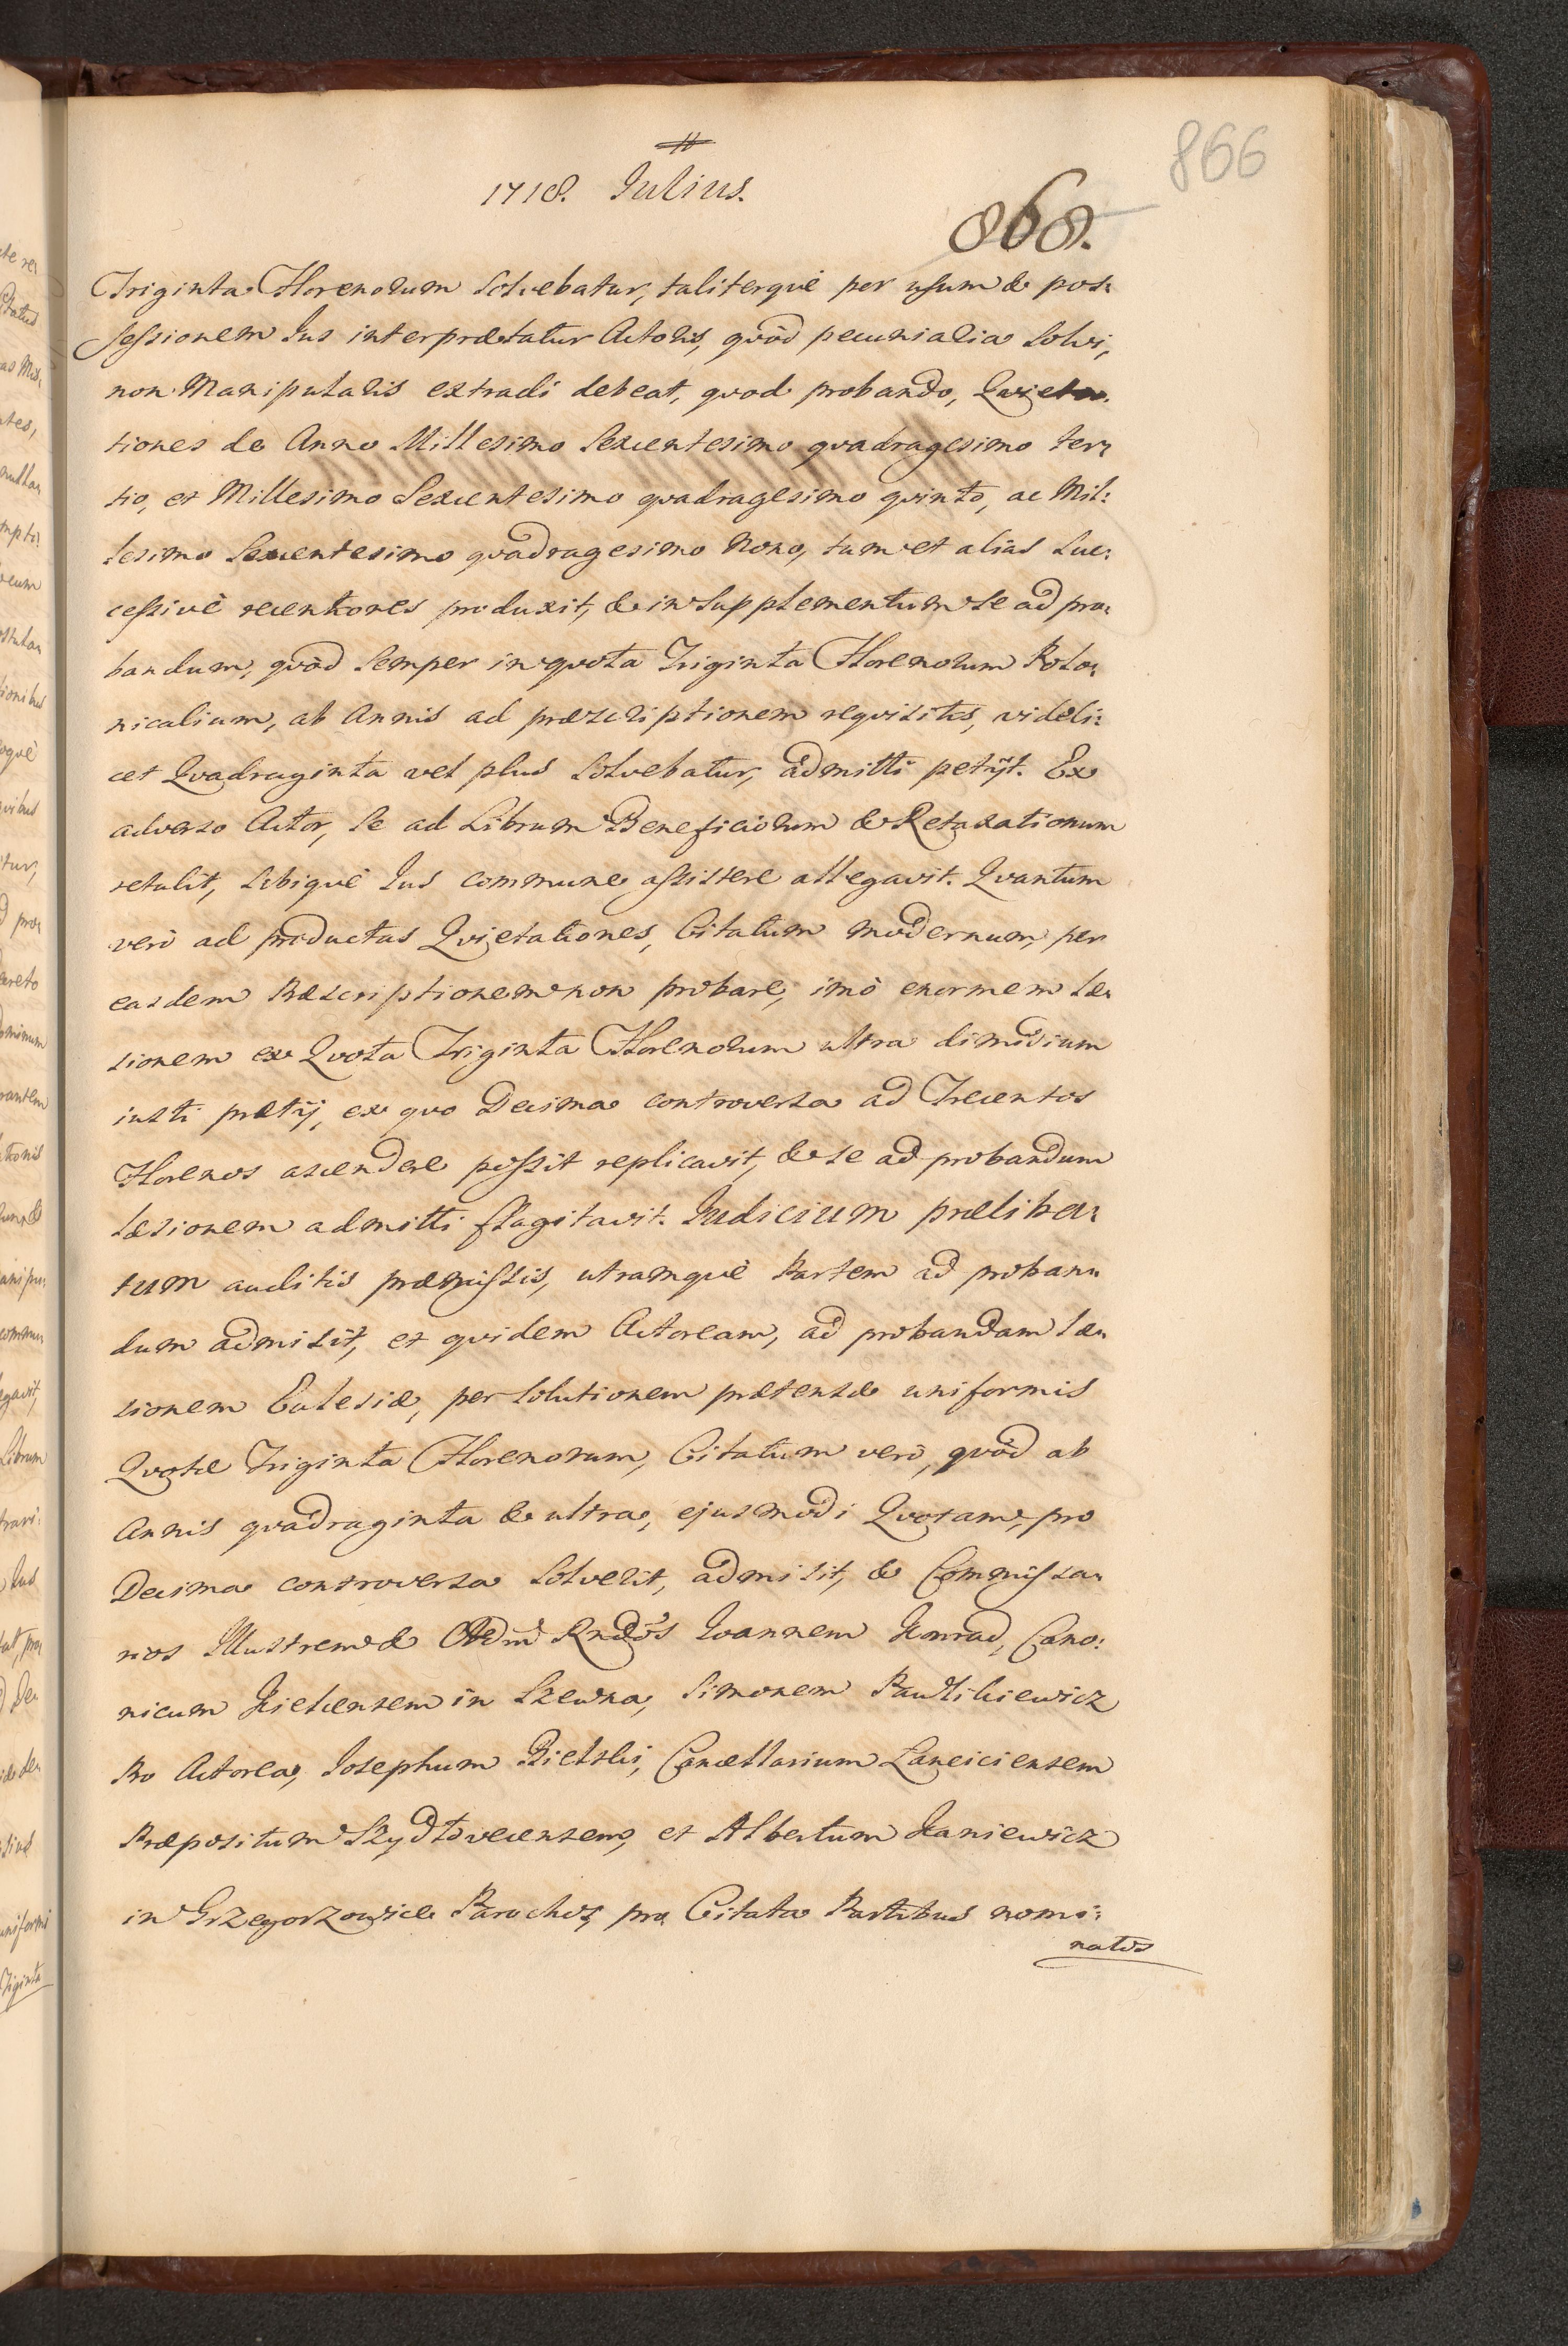 866
1718. Iulius.
868.
Triginta Florenorum solvebatur, taliterquè per usum & pos:
sessionem Ius interprætatur Actoris, quòd pecunialia solvi,
non Manipularis extradi debeat, quod probando, Quieta:
tiones de Anno Millesimo Sexcentesimo quadragesimo ter:
tio, et Millesimo Sexcentesimo quadragesimo quinto, ac Mil:
lesimo Sexcentesimo quadragesimo Nono, tum et alias suc:
cessivè recentiores produxit, & in supplementum se ad pro:
bandum, quòd semper in quota Triginta Florenorum Polo:
nicalium, ab Annis ad præscriptionem requisitis, videli:
cet Quadraginta vel plus solvebatur, admitti petijt. Ex
adverso Actor, se ad Librum Beneficiorum & Retaxationum
retulit, sibiquè Ius commune assistere allegavit. Quantum
verò ad productas Quietationes, Citatum modernum, per
easdem Præscriptionem non probare, imò enormem læ:
sionem ex Quota Triginta Florenorum ultra dimidium
iusti prætij, ex quo Decima controversa ad Trecentos
Florenos ascendere possit replicavit, & se ad probandum
læsionem admitti flagitavit. Iudicium præliba:
tum auditis præmissis, utramquè Partem ad proban:
dum admisit, et quidem Actoream, ad probandam læ:
sionem Eclesiæ, per solutionem prætensæ uniformis
Quotæ Triginta Florenorum, Citatum verò, quòd ab
Annis quadraginta & ultra, ejusmodi Quotam, pro
Decima controversa solverit, admisit, & Commissa:
rios Illustrem & Adm Rndos Ioannem Konrad, Cano:
nicum Kielcensem in Szewna, Simonem Pawlikiewicz
Pro Actorea, Iosephum Bielski, Cancellarium Lanciciensem
Præpositum Szydłovecensem, et Albertum Kaniewicz
in Grzegorzowice Parochos, pro Citata Partibus nomi:
natos